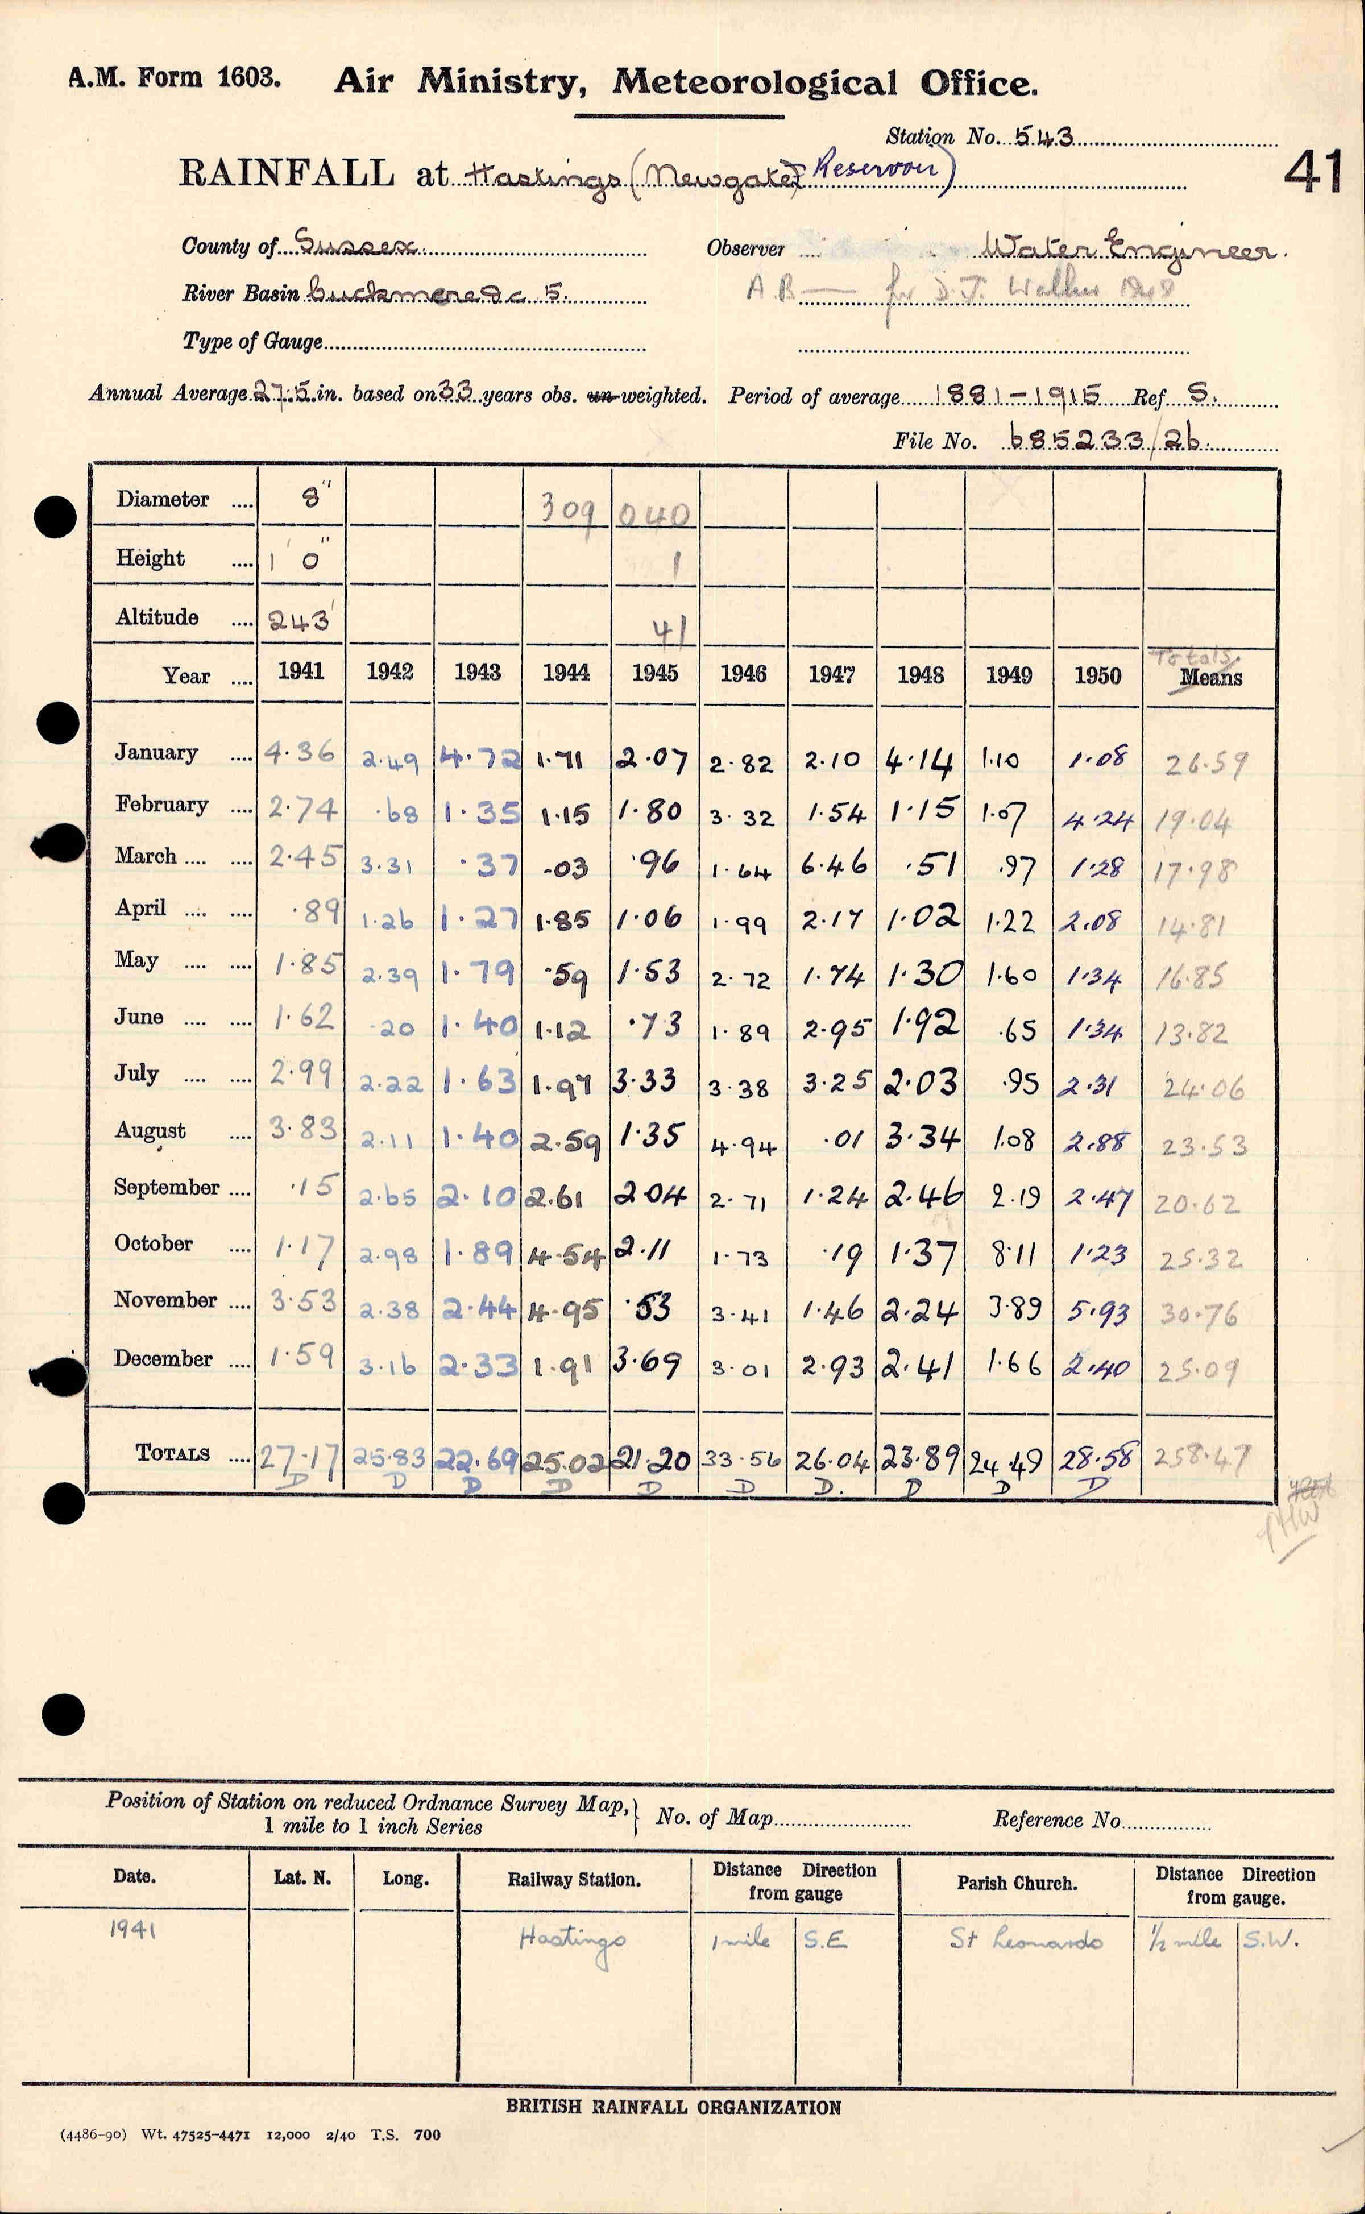 A.M. Form 1603. Air Ministry, Meteorological Office.
Station No. 543
41
RAINFALL at Hastings (Newgate) Reservoir)
County of Sussex Observer Water Engineer.
River Basin Cuckmere &c 5. A.B — for D.J. Walker
Type of Gauge
Annual Average 27.5 in. based on 33 years obs. un-weighted. Period of average 1881-1915 Ref S.
File No. 685233/26.
Diameter .... 8" 309 040
Height .... 1' 0" 1
Altitude .... 243' 41
Totals
Year .... 1941 1942 1943 1944 1945 1946 1947 1948 1949 1950 Means
January .... 4.36 2.49 4.72 1.71 2.07 2.82 2.10 4.14 1.10 1.08 26.59
February .... 2.74 .68 1.35 1.15 1.80 3.32 1.54 1.15 1.07 4.24 19.04
March .... .... 2.45 3.31 .37 .03 .96 1.64 6.46 .51 .97 1.28 17.98
April .... .... .89 1.26 1.27 1.85 1.06 1.99 2.17 1.02 1.22 2.08 14.81
May .... .... 1.85 2.39 1.79 .59 1.53 2.72 1.74 1.30 1.60 1.34 16.85
June .... .... 1.62 .20 1.40 1.12 .73 1.89 2.95 1.92 .65 1.34 13.82
July .... .... 2.99 2.22 1.63 1.97 3.33 3.38 3.25 2.03 .95 2.31 24.06
August .... 3.83 2.11 1.40 2.59 1.35 4.94 .01 3.34 1.08 2.88 23.53
September .... .15 2.65 2.10 2.61 2.04 2.71 1.24 2.46 2.19 2.47 20.62
October .... 1.17 2.98 1.89 4.54 2.11 1.73 .19 1.37 8.11 1.23 25.32
November .... 3.53 2.38 2.44 4.95 .53 3.41 1.46 2.24 3.89 5.93 30.76
December .... 1.59 3.16 2.33 1.91 3.69 3.01 2.93 2.41 1.66 2.40 25.09
TOTALS .... 27.17 25.83 22.69 25.02 21.20 33.56 26.04 23.89 24.49 28.58 258.47
D D D D D D D. D D D
Position of Station on reduced Ordnance Survey Map, } No. of Map Reference No.
1 mile to 1 inch Series
Date. Lat. N. Long. Railway Station. Distance Direction from gauge Parish Church. Distance Direction from gauge.
1941 Hastings 1 mile S.E St Leonards 1/2 mile S.W.
BRITISH RAINFALL ORGANIZATION
(4486-90) Wt. 47525-4471 12,000 2/40 T.S. 700